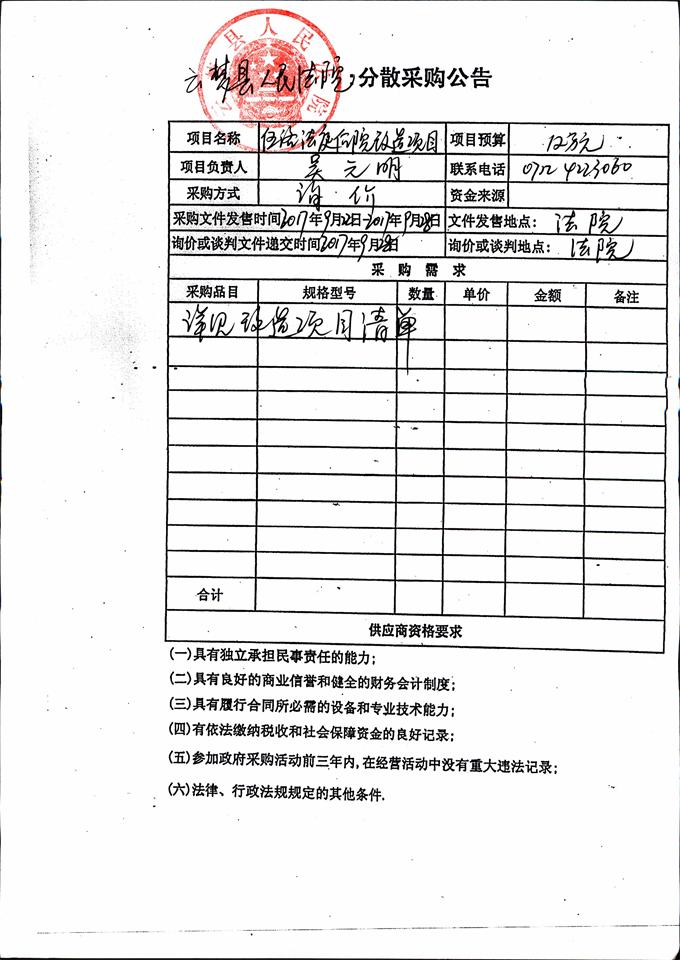 云梦县人民法院分散采购公告
项目名称 伍洛法庭后院改造项目 项目预算 12万元
项目负责人 吴元明 联系电话 0712 4223060
采购方式 询价 资金来源
采购文件发售时间2017年9月22日-2017年9月28日 文件发售地点: 法院
询价或谈判文件递交时间2017年9月28日 询价或谈判地点: 法院
采购需求
采购品目 规格型号 数量 单价 金额 备注
详见改造项目清单
合计
供应商资格要求
(一)具有独立承担民事责任的能力;
(二)具有良好的商业信誉和健全的财务会计制度;
(三)具有履行合同所必需的设备和专业技术能力;
(四)有依法缴纳税收和社会保障资金的良好记录;
(五)参加政府采购活动前三年内,在经营活动中没有重大违法记录;
(六)法律、行政法规规定的其他条件.